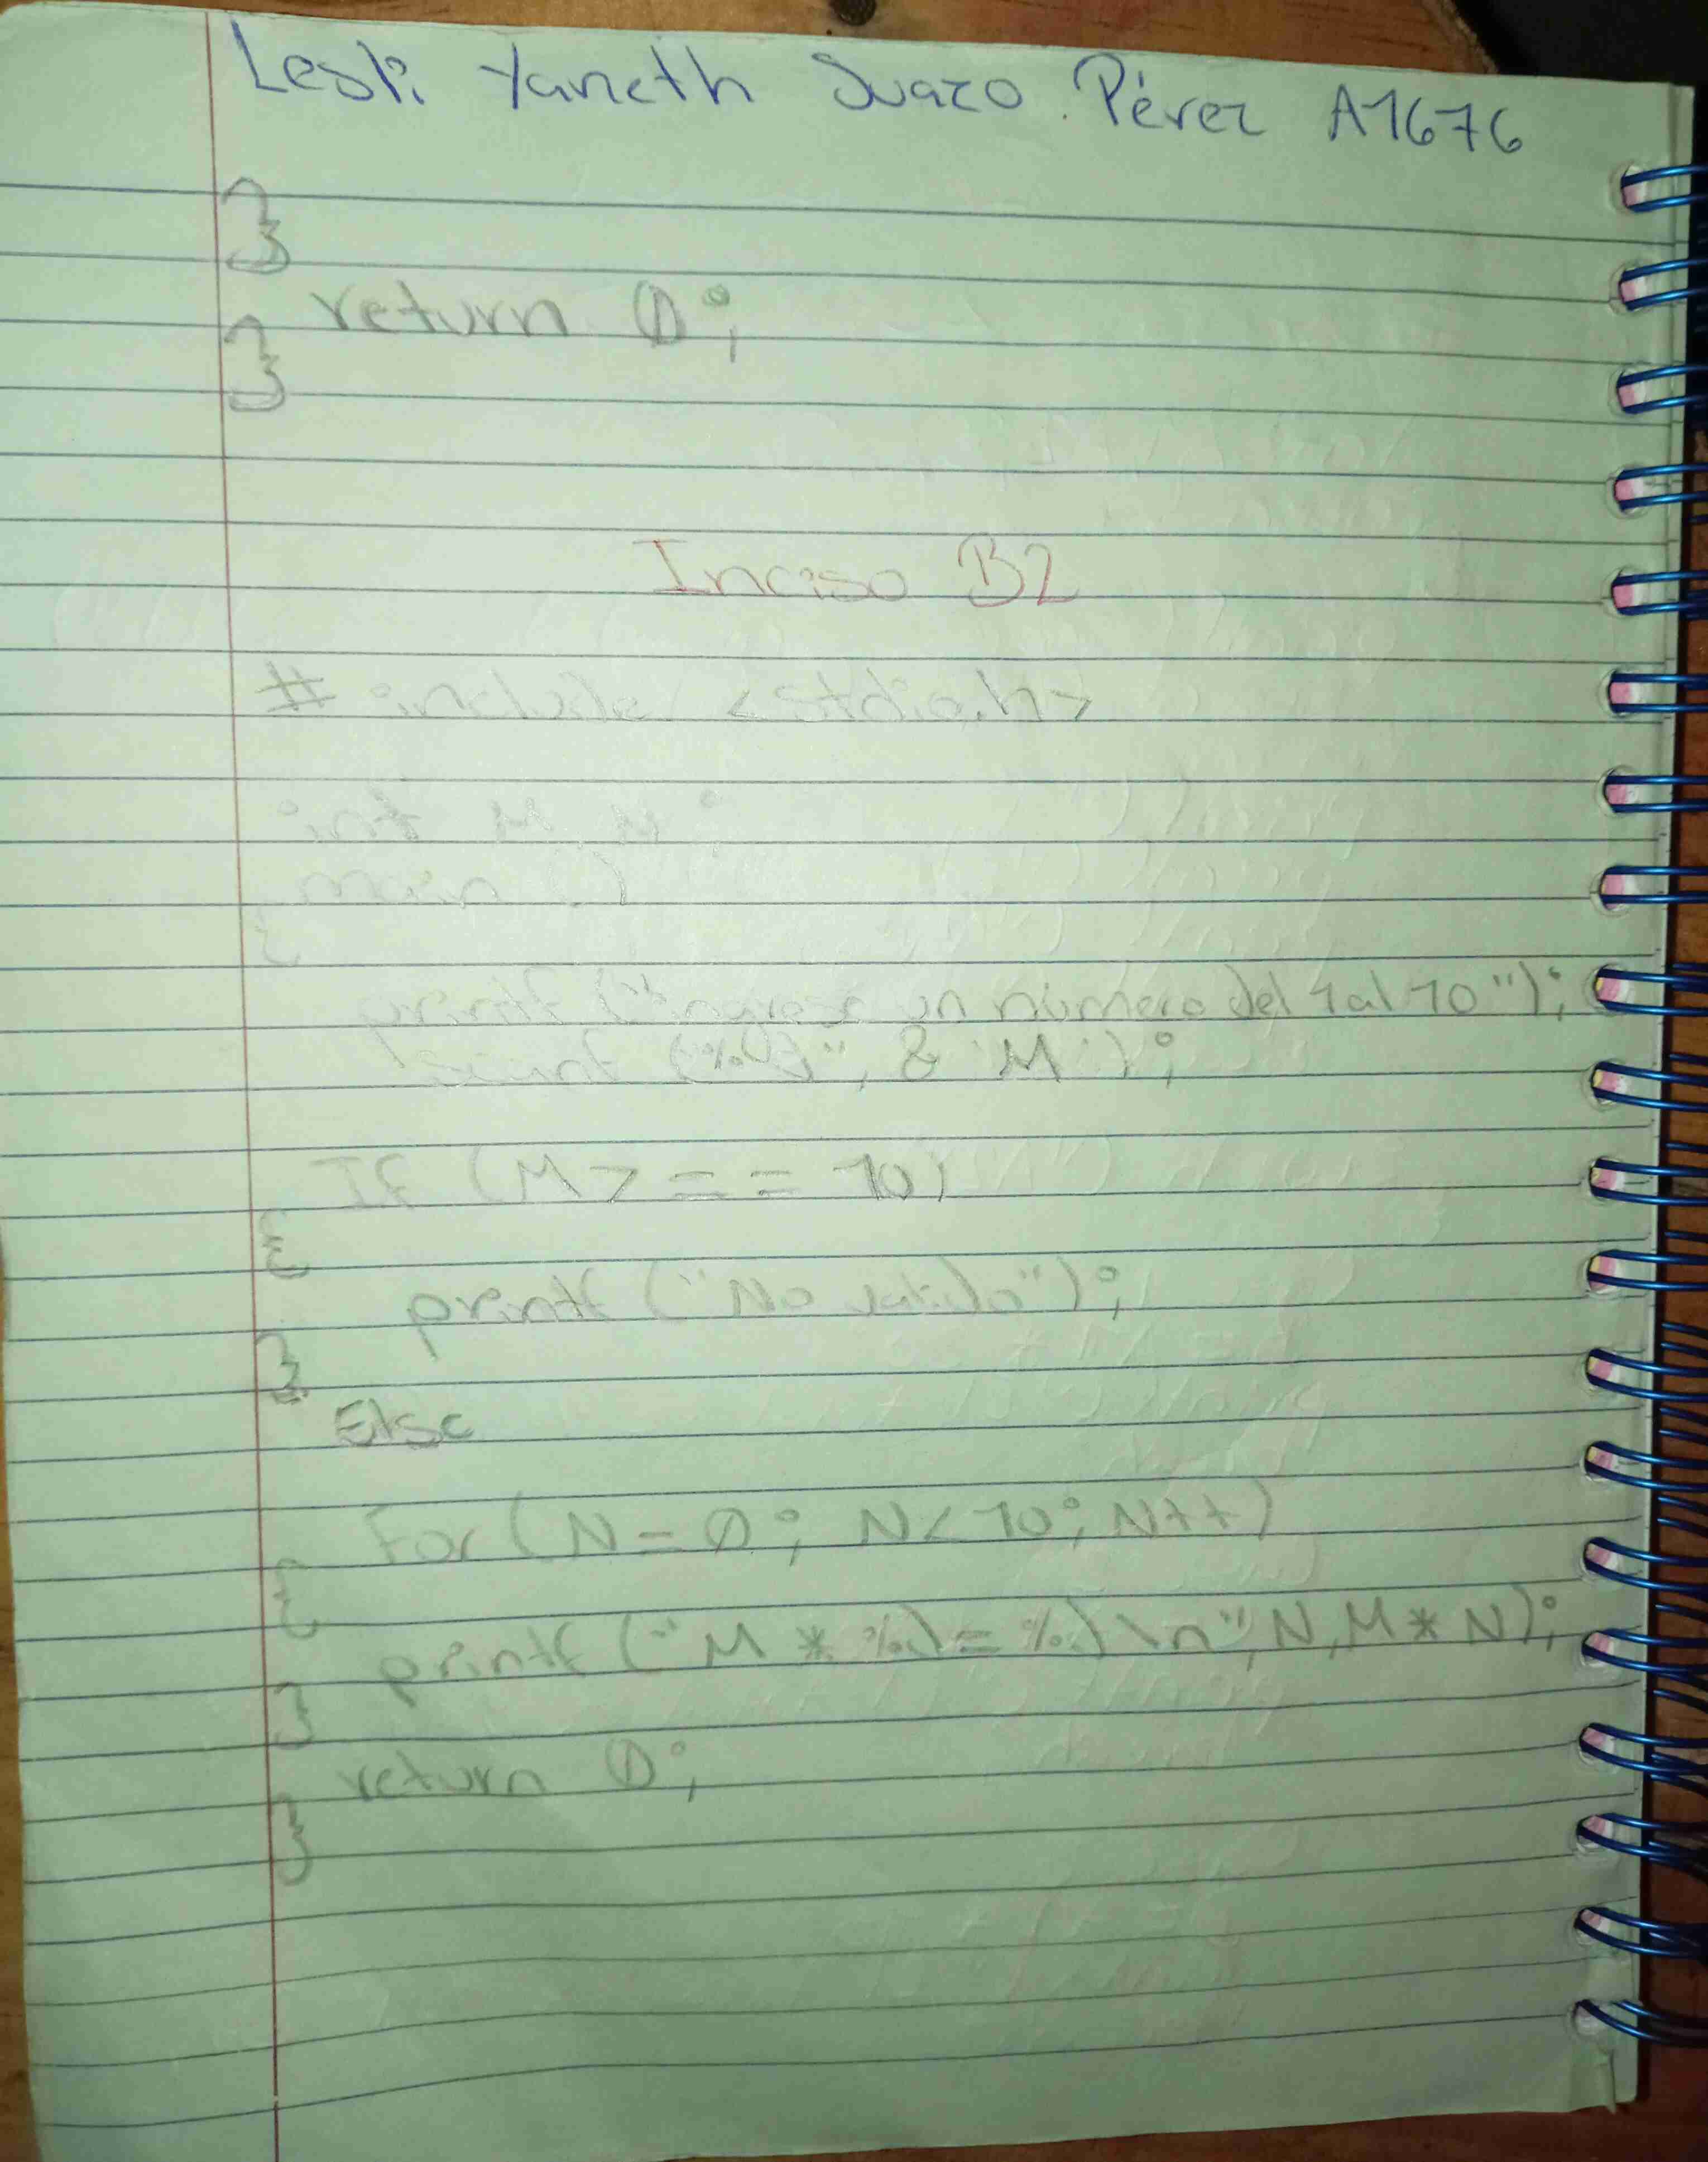 Lesli Yaneth Suazo Pérez A1676
}
return 0;
}
Inciso B2
# include <stdio.h>
int M, N;
main ()
{
printf ("Ingrese un número del 1 al 10");
scanf ("%d", & M);
If (M > = = 10)
{
printf ("No valido");
}
Else
For (N = 0; N < 10; N++)
{
printf ("M * %d = %d \n", N, M * N);
}
return 0;
}